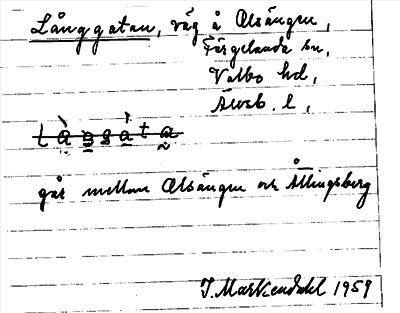 Långgatan, väg å Olsängen,
Färgelanda sn,
Valbo hd,
Älvsb. l,
går mellan Olsängen och Ållingsberg
J. Markendahl 1959